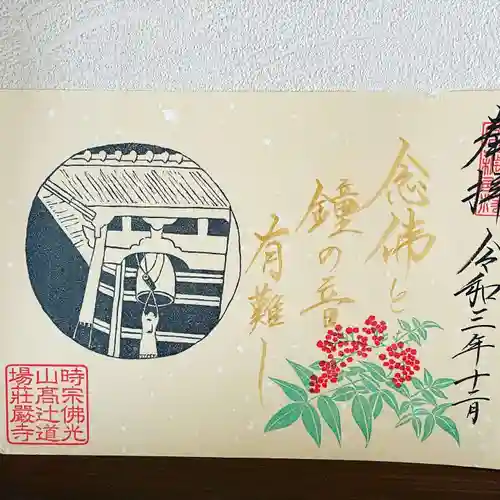 奉拝
令和三年十二月
念佛と
鐘の音
有難し
時宗佛光
山高辻道
場荘嚴寺